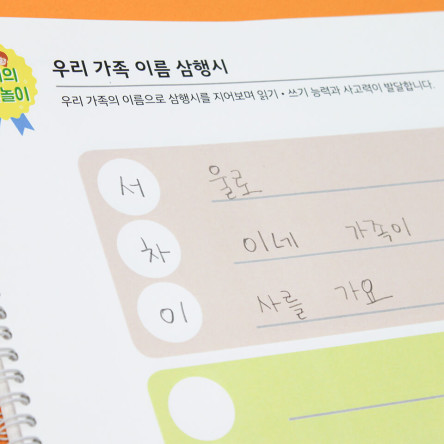 의
놀이
우리 가족 이름 삼행시
우리 가족의 이름으로 삼행시를 지어보며 읽기・쓰기 능력과 사고력이 발달합니다.
서 울로
차 이네 가족이
이 사를 가요